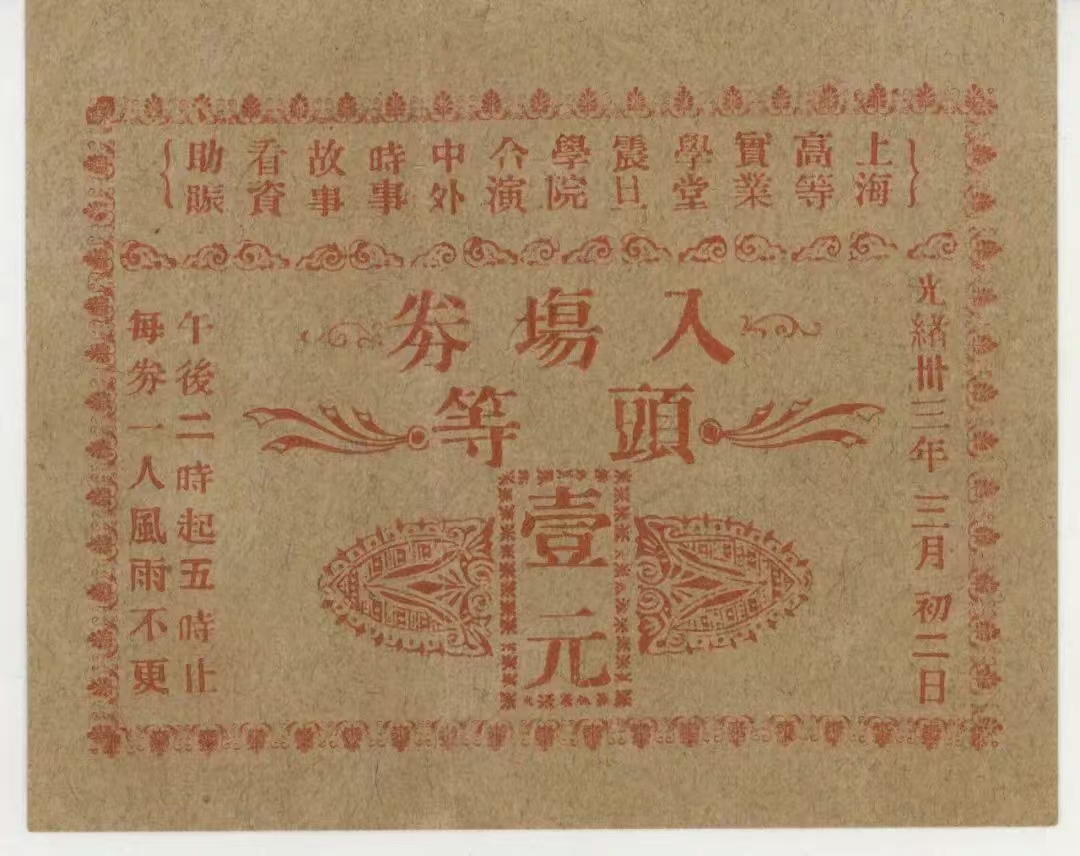 上海高等實業學堂震旦學院合演中外時事故事看資助賑
光緒卅三年三月初二日
入場券
頭等
壹元
午後二時起五時止
每券一人風雨不更